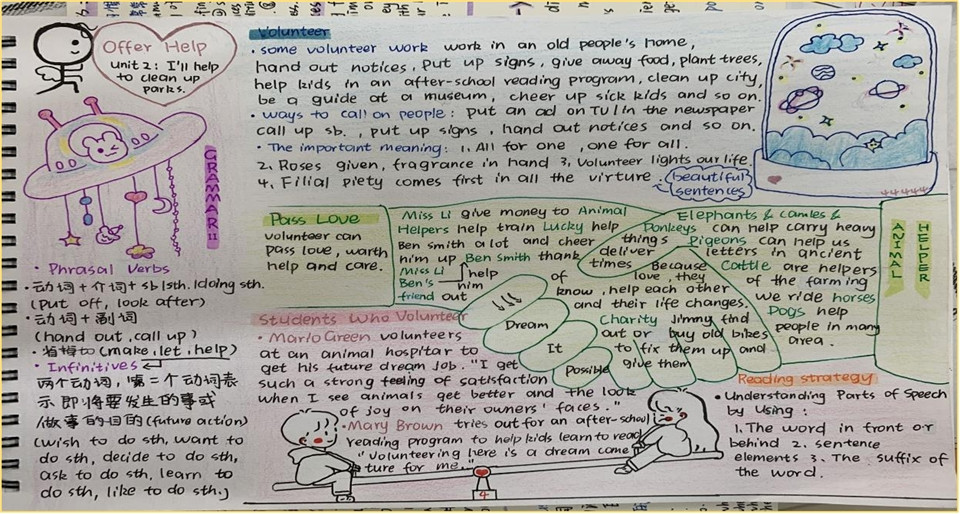 Offer Help
unit 2: I'll help
to clean up
parks.
GRAMMAR
• Phrasal Verbs
• 动词+介词+sb/sth./doing sth.
(put off, look after)
• 动词+副词
(hand out, call up)
(make, let, help)
• Infinitives
两个动词,第二个动词表
示即将要发生的事或
做事的目的(future action)
(wish to do sth, want to
do sth, decide to do sth,
ask to do sth, learn to
do sth, like to do sth.)
Volunteer
• some volunteer work work in an old people's home,
hand out notices, put up signs, give away food, plant trees,
help kids in an after-school reading program, clean up city,
be a guide at a museum, cheer up sick kids and so on.
• ways to call on people: put an ad on TV/in the newspaper
call up sb., put up signs, hand out notices and so on.
• The important meaning: 1. All for one, one for all.
2. Roses given, fragrance in hand 3. Volunteer lights our life.
4. Filial piety comes first in all the virture.
beautiful
sentences
Pass Love
volunteer can
pass love, warth
help and care.
Miss Li give money to Animal
Helpers help train Lucky help
Ben smith a lot and cheer
him up Ben Smith thank
Miss Li
Ben's
friend out
help
him
Elephants & camles &
Donkeys can help carry heavy
things Pigeons can help us
deliver letters in ancient
times Cattle are helpers
of the farming
we ride horses
Dogs help
people in many
area.
Because
of love they
know, help each other
and their life changes.
Charity Jimmy find
out or buy old bikes
to fix them up and
give them
ANIMAL
HELPER
Dream
It
Possible
Students Who Volunteer
• Mario Green volunteers
at an animal hospitar to
get his future dream job. "I get
such a strong feeling of satisfaction
when I see animals get better and the look
of joy on their owners' faces."
• Mary Brown tries out for an after-school
reading program to help kids learn to read
"Volunteering here is a dream come
ture for me."
4
Reading strategy
• Understanding Parts of Speech
by Using:
1. The word in front or
behind 2. sentence
elements 3. The suffix of
the word.